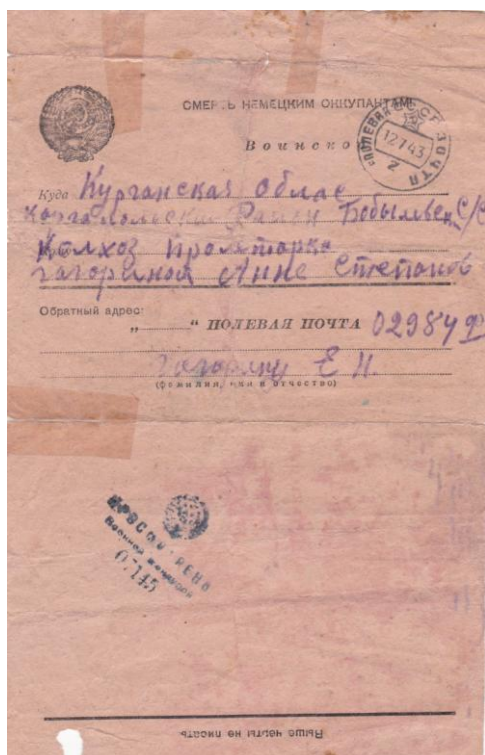 СМЕРТЬ НЕМЕЦКИМ ОККУПАНТАМ!
Воинско
ПОЛЕВАЯ ПОЧТА
12 7 43
2
Куда Курганская облас
Район Бобылевск С/С
Колхоз Пролтарка
гагориной Анне Степанов
Обратный адрес:
„ “ ПОЛЕВАЯ ПОЧТА 02984
Е И.
(фамилия, имя и отчество)
ПРОСМОТРЕНО
Военной Цензурой
07145
Выше черты не писать